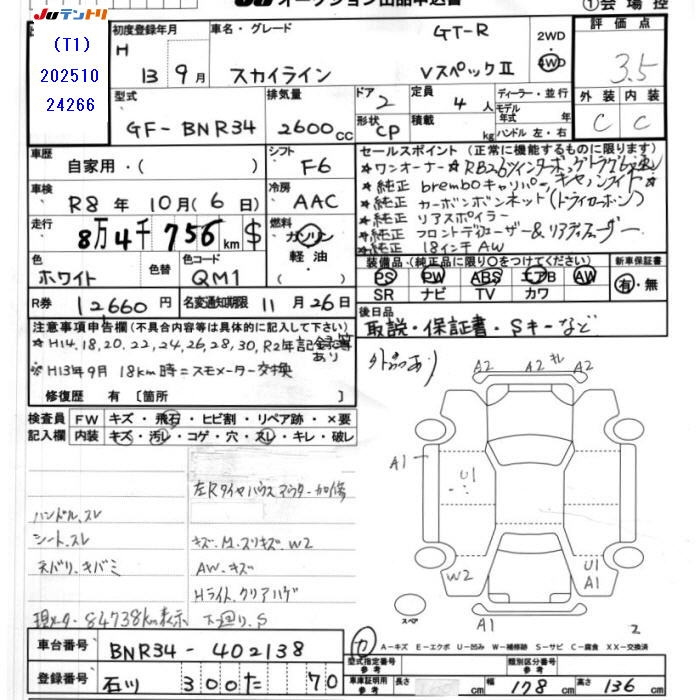 JUテントリ JU オークション出品申込書 ①会場控
(T1)
202510
24266
初度登録年月 車名・グレード GT-R 2WD 評価点
H 13 9月 スカイライン VスペックⅡ 4WD 3.5
型式 排気量 ドア 2 定員 4人 ディーラー・並行 外装 内装
モデル年式 年
GF-BNR34 2600cc 形状 CP 積載 kg ハンドル 左・右 C C
車歴 自家用・( ) シフト F6
車検 R8年10月(6日) 冷房 AAC
走行 8万4千756km $ 燃料 ガソリン 軽油 ( )
色 ホワイト 色替 色コード QM1
R券 12660円 名変通知期限 11月26日
セールスポイント (正常に機能するものに限ります)
☆ワンオーナー☆RB26ツインターボ,ゲトラグ6速☆
☆純正 bremboキャリパー,キセノンライト☆
☆純正 カーボンボンネット(ドライカーボン)
☆純正 リアスポイラー
☆純正 フロントディフューザー&リアディフューザー
☆純正 18インチAW
装備品・(純正品に限り○をつけてください) 新車保証書
PS PW ABS エアB AW 有・無
SR ナビ TV カワ
後日品
取説・保証書・Sキーなど
注意事項申告欄(不具合内容等は具体的に記入して下さい)
※H14,18,20,22,24,26,28,30,R2年記録簿あり
※H13年9月 18km時=スモメーター交換
修復歴 有 [箇所 ]
検査員 FW キズ・飛石・ヒビ割・リペア跡・×要
記入欄 内装 キズ・汚レ・コゲ・穴・スレ・キレ・破レ
左RタイヤハウスアウターE加修
ハンドル,スレ
シート,スレ キズ,M,スリキズ,W2
ネバリ,キバミ AW,キズ
Hライト,クリアハゲ
現メータ,84738km表示 下廻り,S
外ボウあり
A2 A2 キレ A2
A1 U1
W2 U1
A1
スペア A1 2
車台番号 BNR34-402138
登録番号 石川 300 た 70
カ A-キズ E-エクボ U-凹み W-補修跡 S-サビ C-腐食 XX-交換済
型式指定番号 参考 類別区分番号 参考
車庫証明用 参考 長さ cm 幅 178cm 高さ 136cm